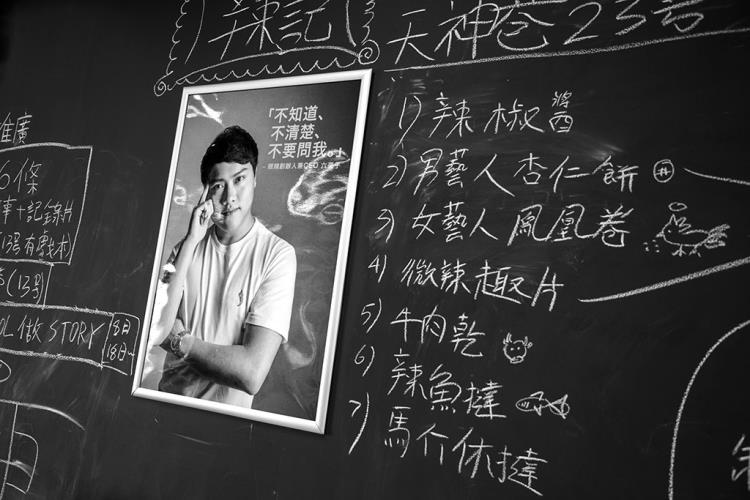 辣記
天神蒼23号
推廣
6條
事+記錄片
(13号有戲木)
(13号)
OL做STORY
18日
18日~
「不知道、
不清楚、
不要問我。」
1) 辣椒醬
2) 男藝人杏仁餅
3) 女藝人鳳凰卷
4) 微辣趣片
5) 牛肉乾
6) 辣魚撻
7) 馬介休撻